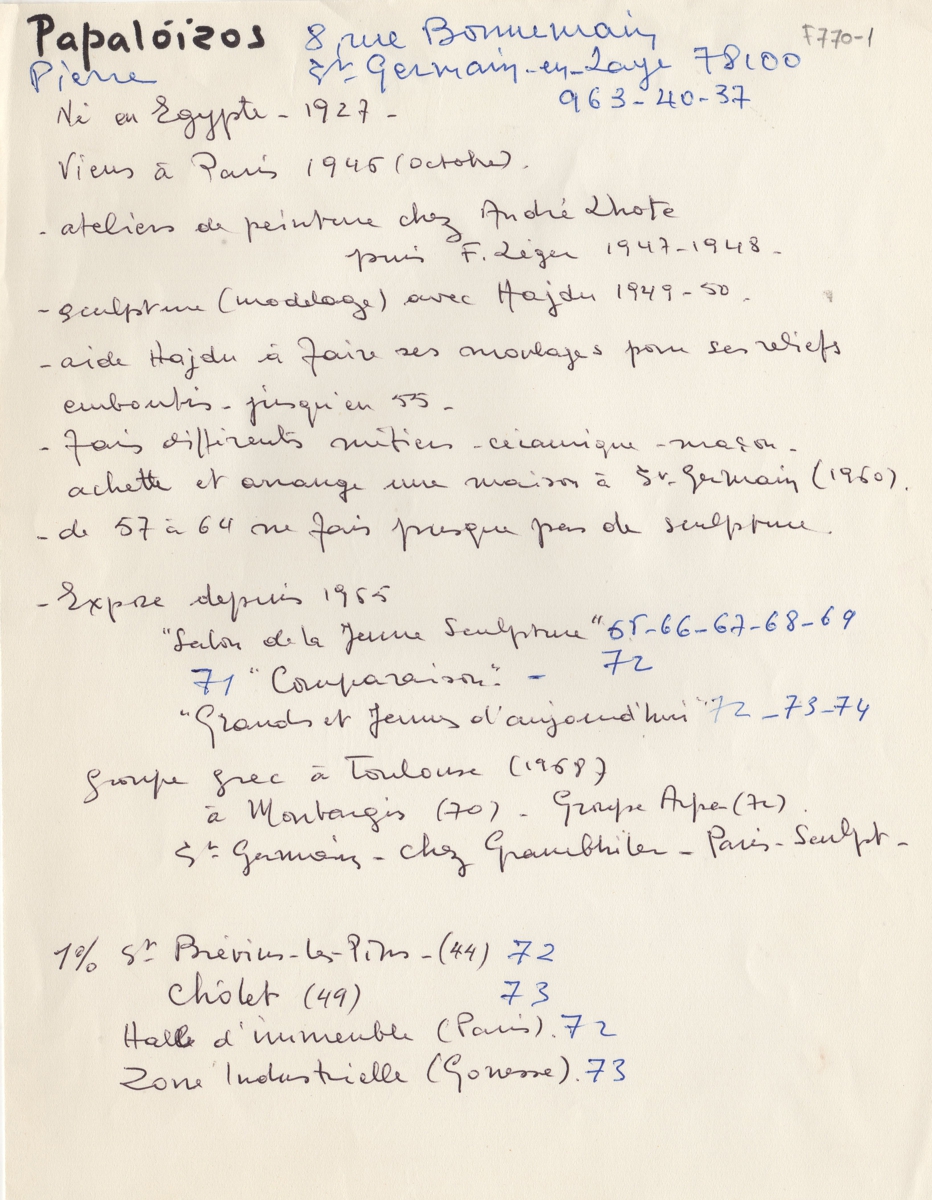 Papalóizos 8, rue Bonnemain F770-1
Pierre St Germain-en-Laye 78100
963-40-37
Né en Egypte - 1927 -
Viens à Paris 1945 (octobre).
- ateliers de peinture chez André Lhote
puis F. Léger 1947-1948 -
- sculpture (modelage) avec Hajdu 1949-50.
- aide Hajdu à faire ses moulages pour ses reliefs
emboutis - jusqu'en 55 -
- fais différents métiers - céramique - maçon -
achette et arrange une maison à St Germain (1960).
- de 57 à 64 ne fais presque pas de sculpture.
- Expose depuis 1965
"Salon de la Jeune Sculpture" 65-66-67-68-69
71 "Comparaison". - 72
"Grands et Jeunes d'aujourd'hui" 72-73-74
groupe grec à Toulouse (1968)
à Montargis (70) - Groupe Arpa (72).
St Germain - chez - Paris-Sculpt -
1% St Brévins-les-Pins - (44) 72
Chôlet (49) 73
Halle d'immeuble (Paris). 72
Zone Industrielle (Gonesse). 73